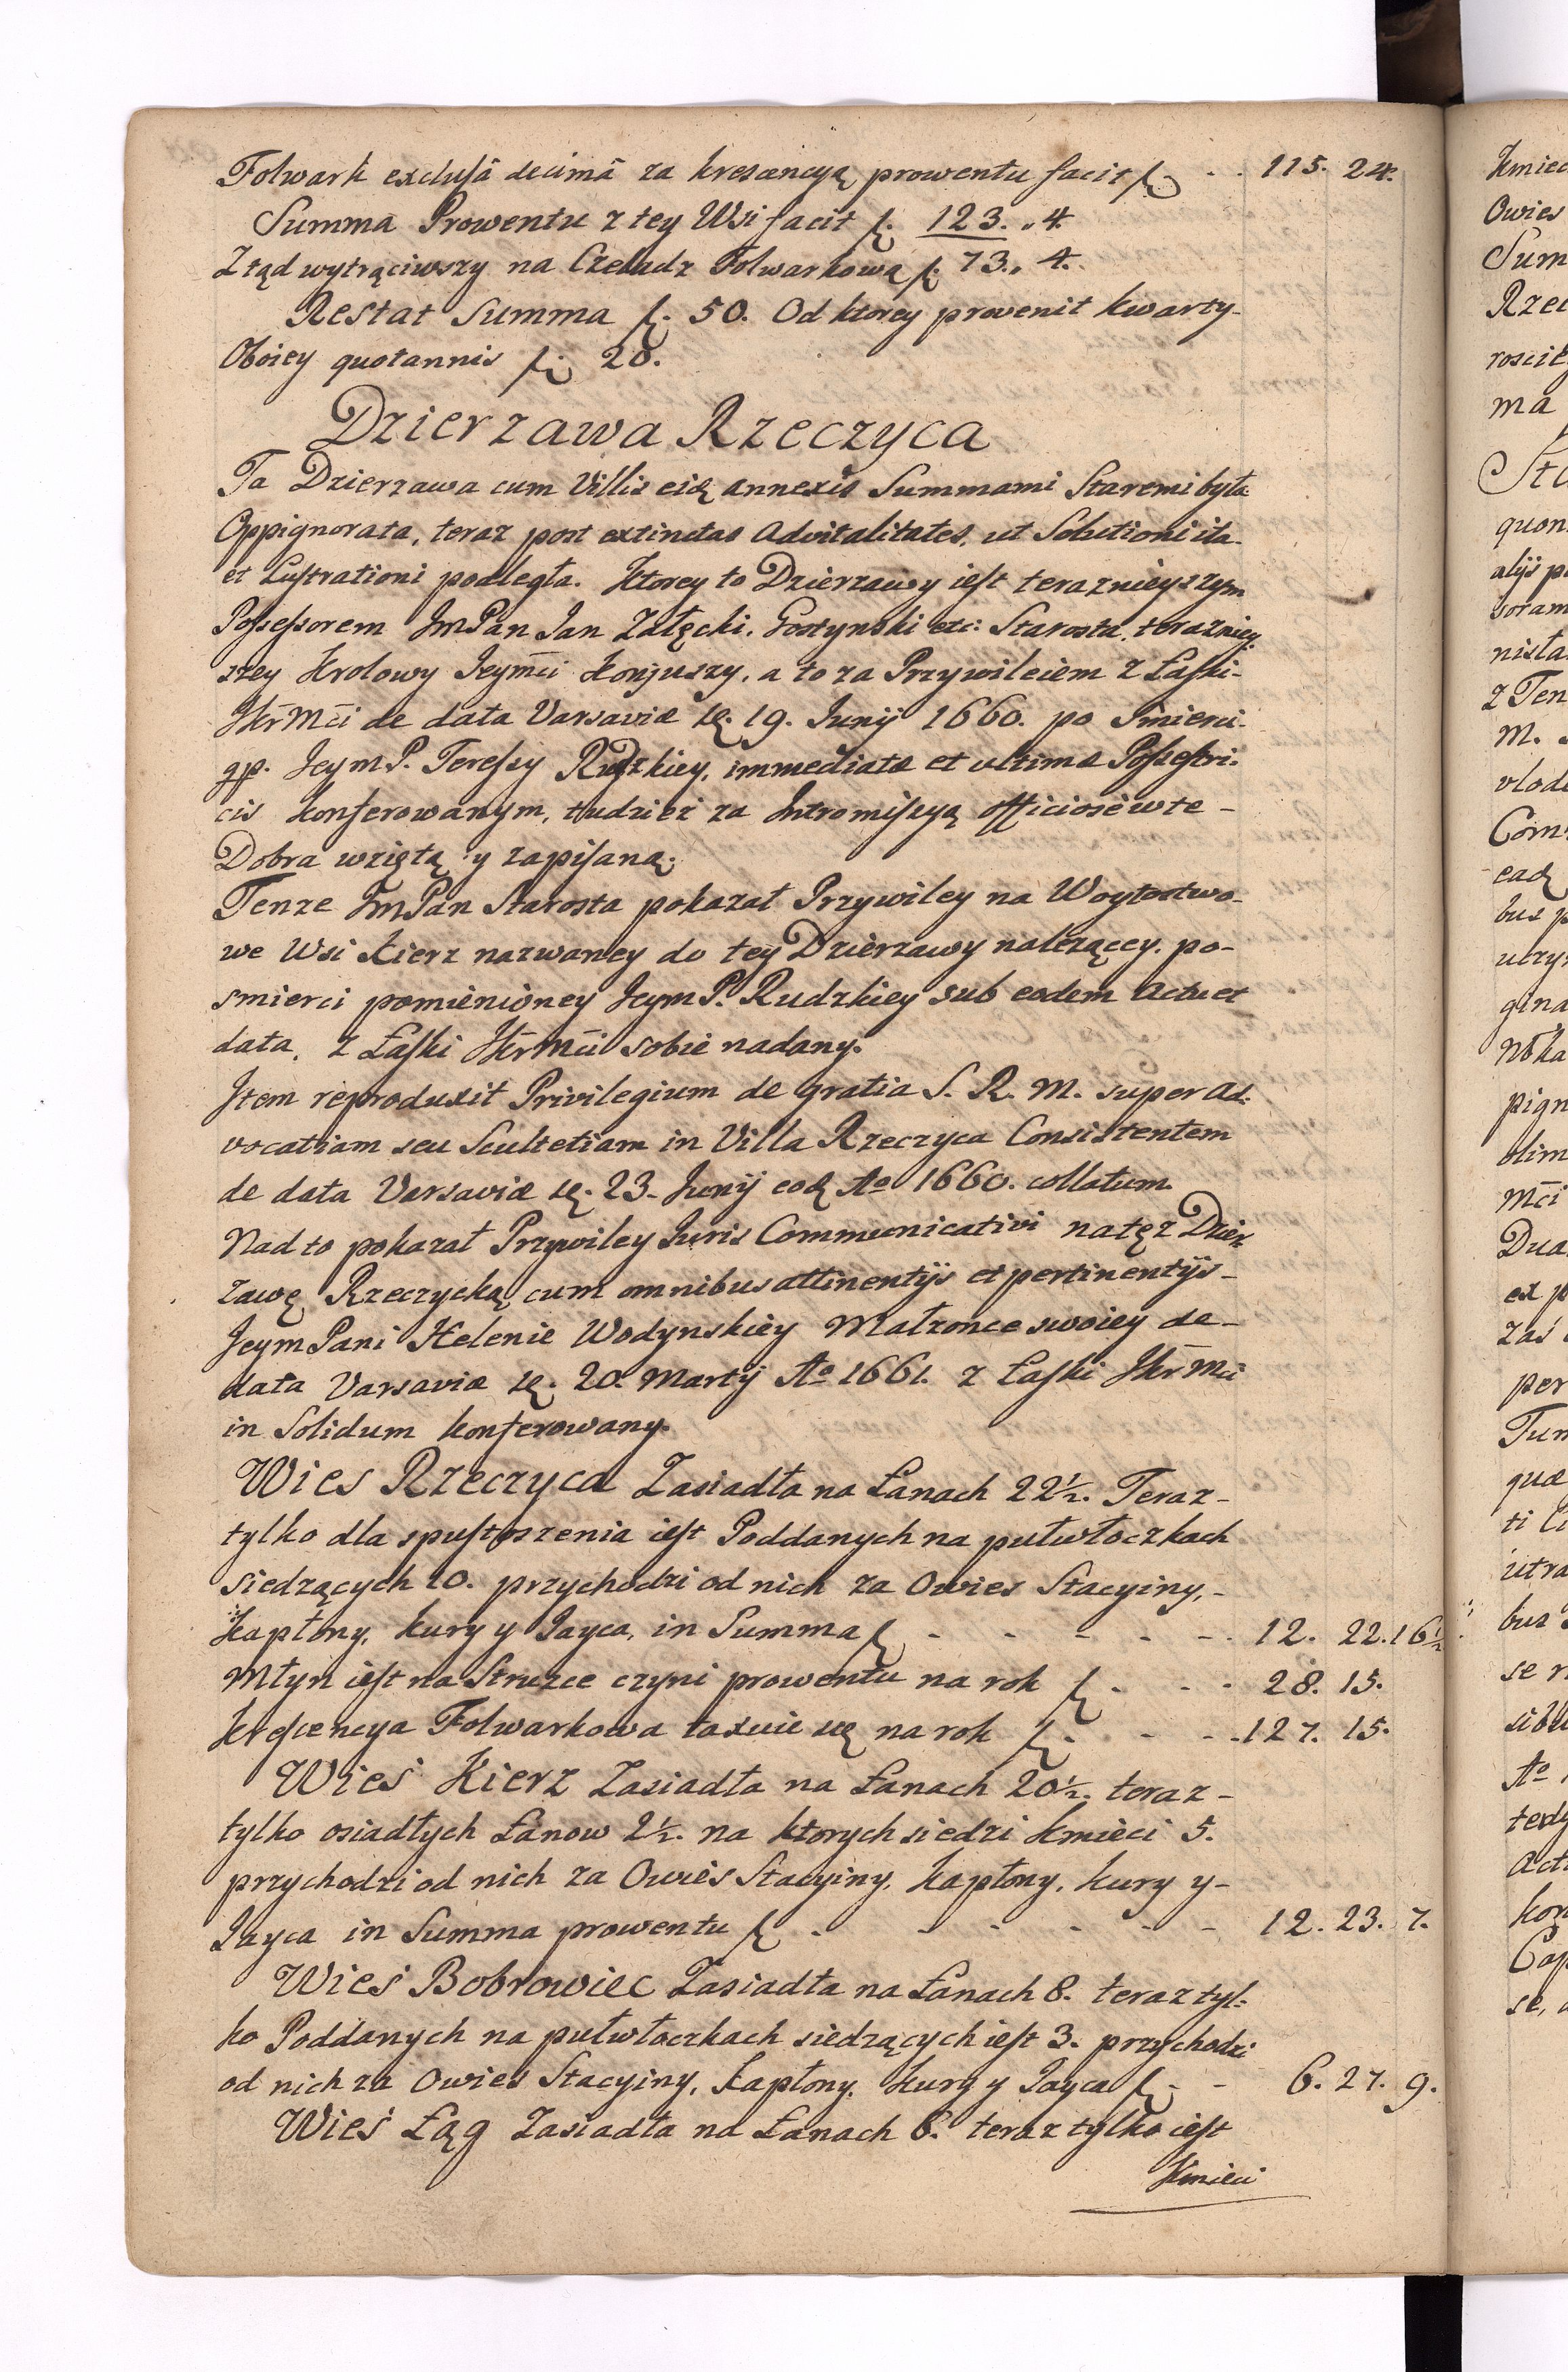 Folwark exclusâ decimâ za krescencyą prowentu facit f. - - 115. 24.
Summa Prowentu z tey Wsi facit f. 123. „ 4.
Ztąd wytrąciwszy na Czeladz Folwarkową f. 73. „ 4.
Restat Summa f. 50. Od ktorey provenit kwarty-
Oboiey quotannis f. 20.
Dzierzawa Rzeczyca
Ta Dzierzawa cum Villis eid annexis Summami Staremi była
Oppignorata, teraz post extinctas Advitalitates, ut Solutioni ita-
et Lustrationi podległa. Ktorey to Dzierzawy iest teraznieyszym
Possessorem JmPan Jan Załęcki, Gostynski etc: Starosta, terazniey
szey Krolowy Jeymći Konjuszy, a to za Przywileiem z Łaski-
JKrMći de data Varsaviæ d. 19. Junij 1660. po Smierci-
gp. JeymP. Teressy Rudzkiey, immediatæ et ultimæ Possestri-
cis konferowanym, tudziez za Intromissyą officiosè w te-
Dobra wziętą y zapisaną.
Tenze JmPan Starosta pokazał Przywiley na Woytostwo-
we Wsi Kierz nazwaney do tey Dzierzawy nalezącey. po-
smierci pomienioney JeymP. Rudzkiey sub eodem Actu et
data, z Łaski JKrMći sobie nadany.
Item reproduxit Privilegium de gratia S. R. M. super Ad-
vocatiam seu Scultetiam in Villa Rzeczyca Consistentem
de data Varsaviæ d. 23. Junij eod Ao 1660. collatum.
Nad to pokazał Przywiley Juris Communicativi na tęz Dzier
zawę Rzeczycką cum omnibus attinentijs et pertinentijs-
Jeym Pani Helenie Wodynskiey Małzonce swoiey de-
data Varsaviæ d. 20. Martij Ao 1661. z Łaski JKrMći
in Solidum konferowany.
Wies Rzeczyca Zasiadła na Łanach 22½. Teraz-
tylko dla spustoszenia iest Poddanych na pułwłoczkach
siedzących 10. przychodzi od nich za Owies Stacyiny,-
Kapłony, kury y Jayca, in Summa f. - - - - - 12. 22. 16½
Młyn iest na Struzce czyni prowentu na rok f. - - - 28. 15.
Krescencya Folwarkowa taxuie się na rok f. - - - 127. 15.
Wieś Kierz Zasiadła na Łanach 20½. teraz-
tylko osiadłych Łanow 2½. na ktorych siedzi Kmieci 5.
przychodzi od nich za Owies Stacyiny, kapłony, kury y-
Jayca in Summa prowentu f. - - - - - 12. 23. 7.
Wieś Bobrowiec Zasiadła na Łanach 8. teraz tyl-
ko Poddanych na pułwłoczkach siedzących iest 3. przychodzi
od nich za Owies Stacyiny, Kapłony, Kury y Jayca f. - - 6. 27. 9.
Wieś Łąg Zasiadła na Łanach 6. teraz tylko iest
Kmieci